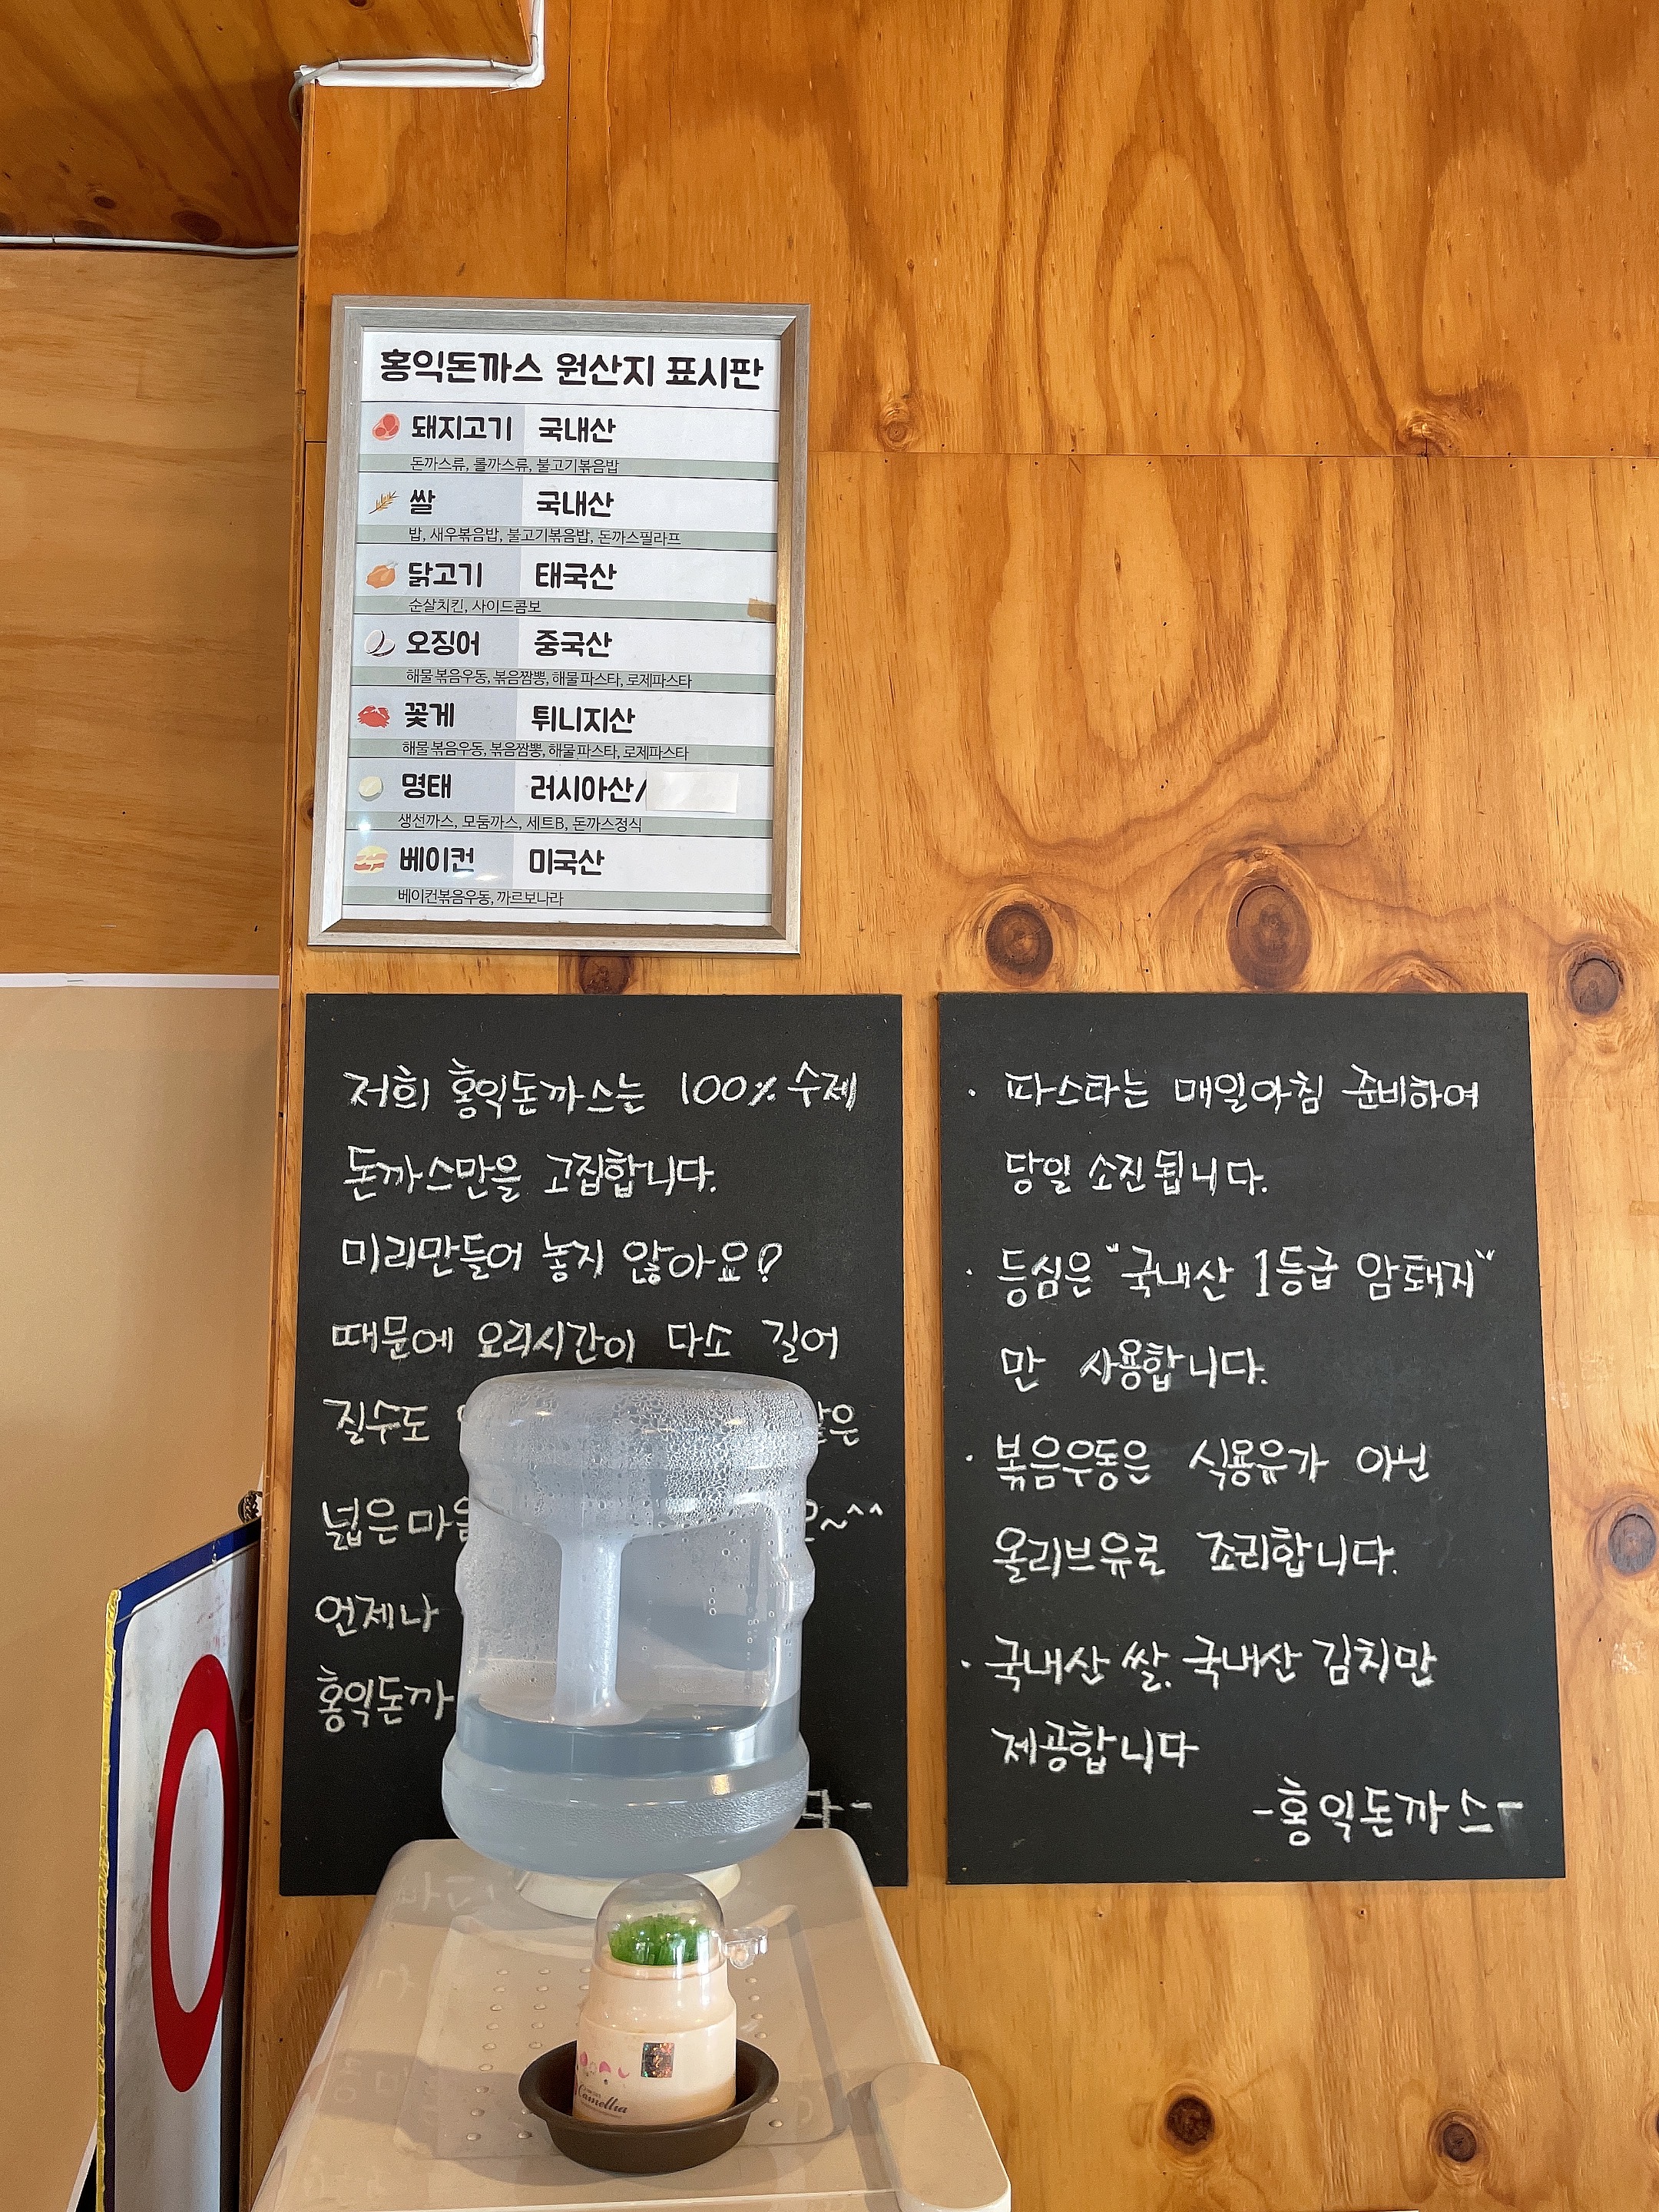 홍익돈까스 원산지 표시판
돼지고기 국내산
돈까스류, 롤까스류, 불고기볶음밥
쌀 국내산
밥, 새우볶음밥, 불고기볶음밥, 돈까스필라프
닭고기 태국산
순살치킨, 사이드콤보
오징어 중국산
해물볶음우동, 볶음짬뽕, 해물파스타, 로제파스타
꽃게 튀니지산
해물볶음우동, 볶음짬뽕, 해물파스타, 로제파스타
명태 러시아산/
생선까스, 모둠까스, 세트B, 돈까스정식
베이컨 미국산
베이컨볶음우동, 까르보나라
저희 홍익돈까스는 100% 수제
돈까스만을 고집합니다.
미리만들어 놓지 않아요?
때문에 요리시간이 다소 길어
질수도
넓은
언제나
홍익돈까
· 파스타는 매일아침 준비하여
당일 소진됩니다.
· 등심은 "국내산 1등급 암퇘지"
만 사용합니다.
· 볶음우동은 식용유가 아닌
올리브유로 조리합니다.
· 국내산 쌀. 국내산 김치만
제공합니다
-홍익돈까스-
Camellia